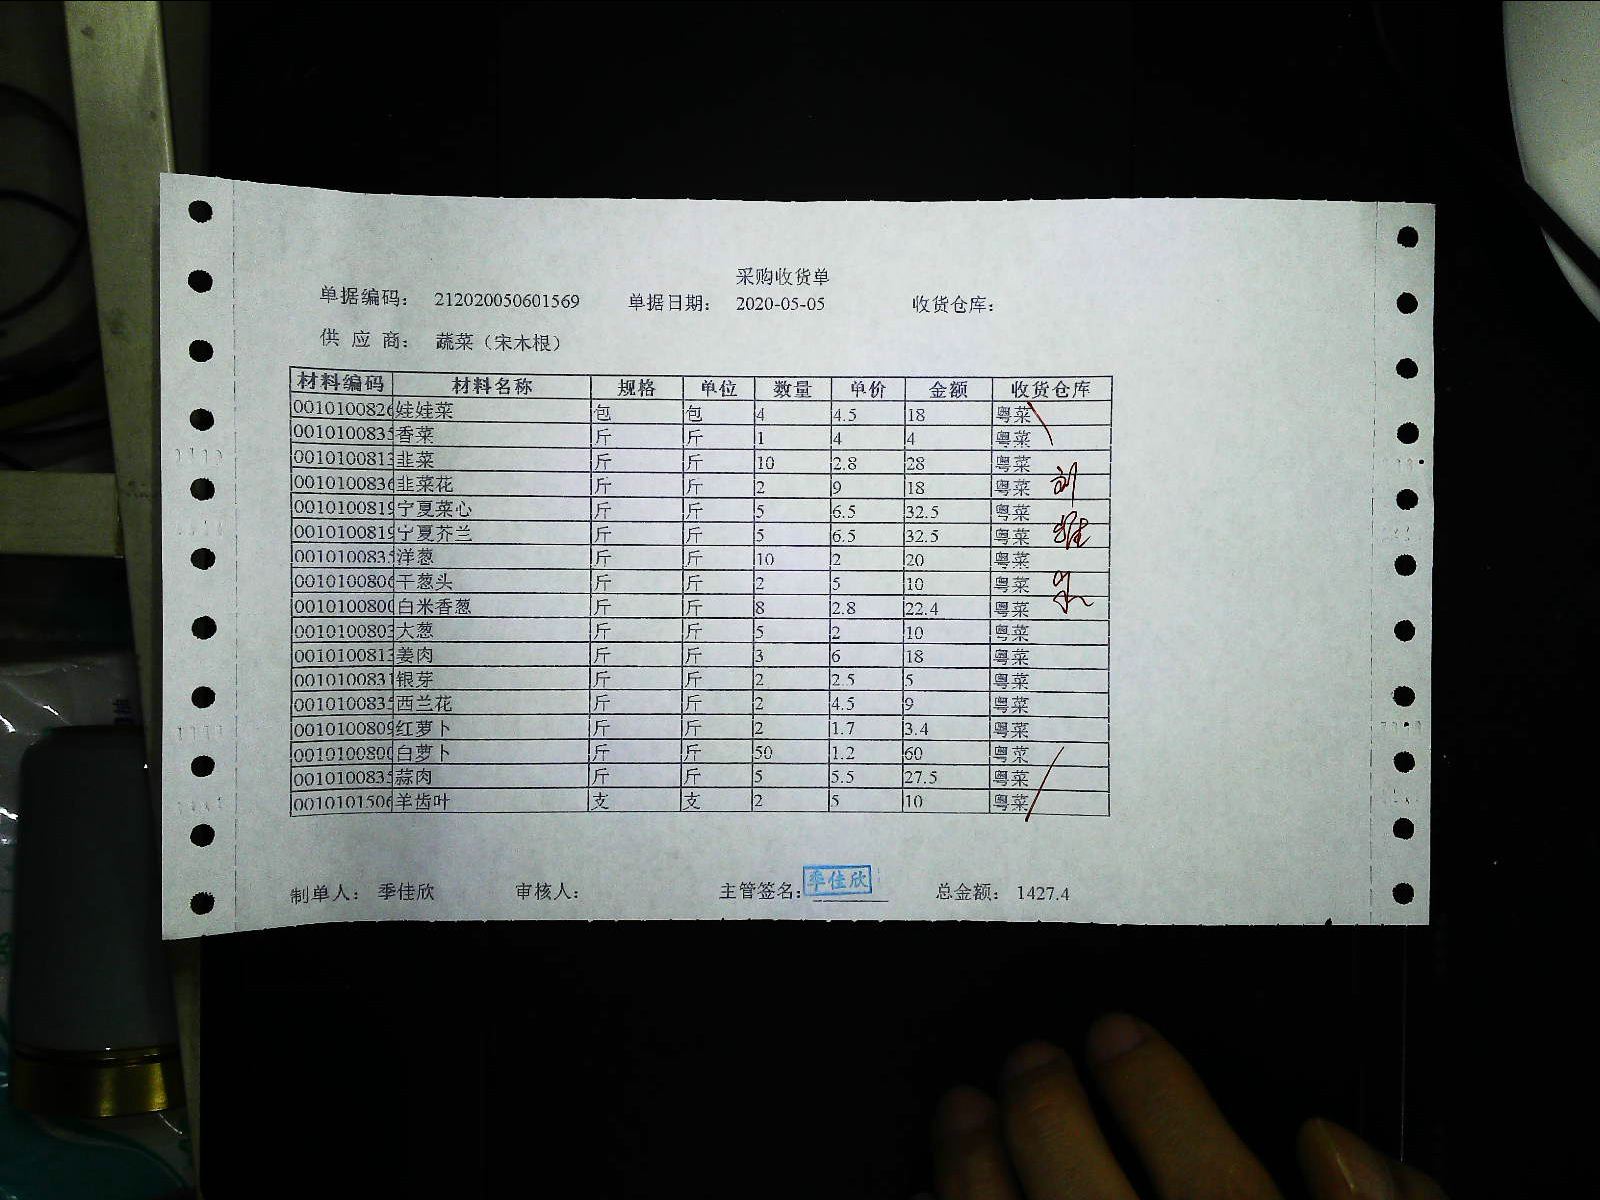 采购收货单
单据编码： 212020050601569 单据日期： 2020-05-05 收货仓库：
供 应 商： 蔬菜（宋木根）
材料编码 材料名称 规格 单位 数量 单价 金额 收货仓库
0010100826 娃娃菜 包 包 4 4.5 18 粤菜
0010100835 香菜 斤 斤 1 4 4 粤菜
0010100813 韭菜 斤 斤 10 2.8 28 粤菜
0010100836 韭菜花 斤 斤 2 9 18 粤菜
0010100819 宁夏菜心 斤 斤 5 6.5 32.5 粤菜
0010100819 宁夏芥兰 斤 斤 5 6.5 32.5 粤菜
0010100835 洋葱 斤 斤 10 2 20 粤菜
0010100806 干葱头 斤 斤 2 5 10 粤菜
0010100800 白米香葱 斤 斤 8 2.8 22.4 粤菜
0010100803 大葱 斤 斤 5 2 10 粤菜
0010100813 姜肉 斤 斤 3 6 18 粤菜
0010100831 银芽 斤 斤 2 2.5 5 粤菜
0010100835 西兰花 斤 斤 2 4.5 9 粤菜
0010100809 红萝卜 斤 斤 2 1.7 3.4 粤菜
0010100800 白萝卜 斤 斤 50 1.2 60 粤菜
0010100835 蒜肉 斤 斤 5 5.5 27.5 粤菜
0010101506 羊齿叶 支 支 2 5 10 粤菜
制单人： 季佳欣 审核人： 主管签名： 季佳欣 总金额： 1427.4